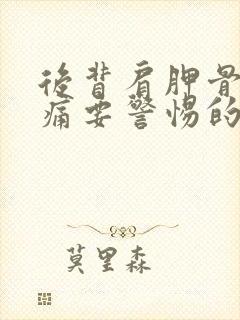 後背肩胛骨
痛要警惕的
莫里森